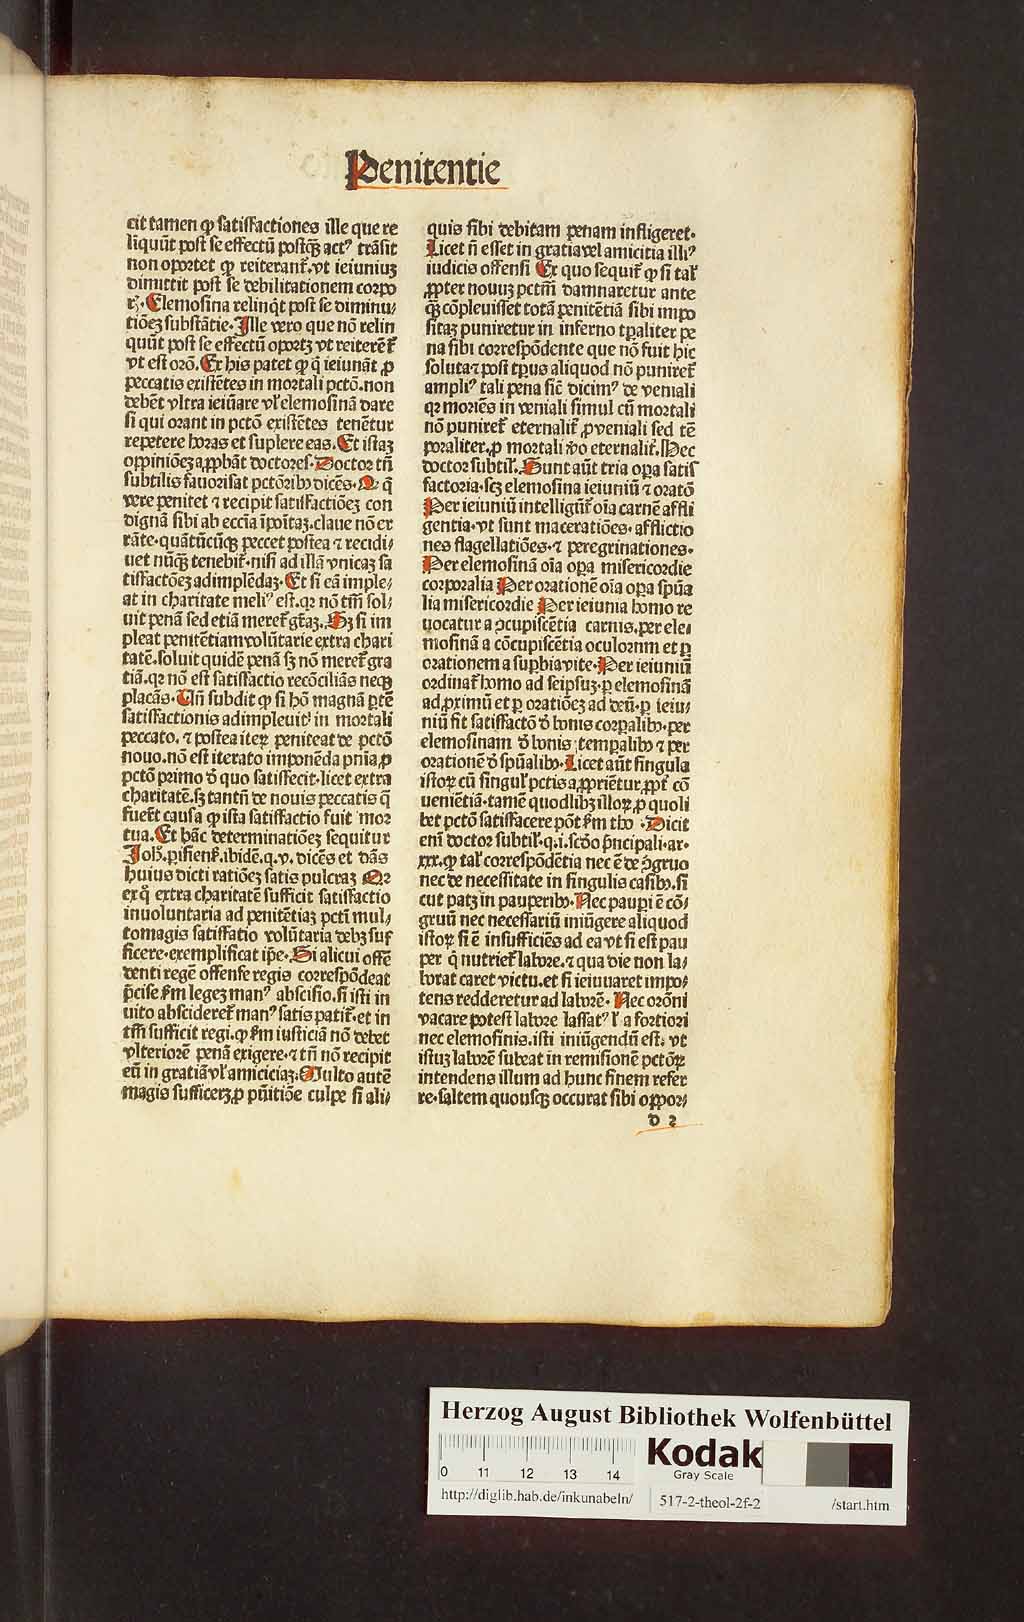 Penitentie
cit tamen ꝙ satisfactiones ille que re
liquūt post se effectū postꝗ̈ꝫ actꝰ trāsit
non oportet ꝙ reiterant᷑.vt ieiuniuꝫ
dimittit post se debilitationem corpo
rꝭ.Elemosina relinq̄t post se diminu⸗
tiōeꝫ substātie.Ille vero que nō relin
quūt post se effectū oportꝫ vt reiterēt᷑
vt est orō.Ex his patet ꝙ q̄ ieiunāt ꝓ
peccatis existētes in mortali pctō.non
debēt vltra ieiūare vl̓ elemosinā dare
si qui orant in pctō existētes tenētur
repetere horas et suplere eas.Et istaꝫ
oppiniōeꝫ aꝓbāt doctores.Doctor tn̄
subtilis fauorisat pctōribꝰ dicēs.Ꝙ q̄
vere penitet ⁊ recipit satisfactiōeꝫ con
dignā sibi ab eccīa īpoītaꝫ.claue nō er
rāte.quātūcūqꝫ peccet postea ⁊ recidi⸗
uet nūqꝫ tenebit᷑.nisi ad illā vnicaꝫ sa
tisfactōeꝫ adimplēdaꝫ.Et si eā imple⸗
at in charitate meliꝰ est.qꝛ nō tm̄ sol⸗
uit penā sed etiā meret᷑ gr̄aꝫ.Sꝫ si im
pleat penitētiam volūtarie extra chari
tatē.soluit quidē penā sꝫ nō meret᷑ gra
tiā.qꝛ nō est satisfactio recōciliās neqꝫ
placās.Vn̄ subdit ꝙ si hō magnā ꝑtē
satisfactionis adimpleuit in mortali
peccato.⁊ postea iteꝝ peniteat de pctō
nouo.nō est iterato imponēda pn̄ia ꝓ
pctō primo ꝺ̄ quo satisfecit.licet extra
charitatē.sꝫ tantū de nouis peccatis q̄
fuer̄t causa ꝙ ista satisfactio fuit mor
tua.Et hāc determinatiōeꝫ sequitur
Joh̄.ꝑisienẜ.ibidē.q.v.dicēs et dās
huius dicti ratiōeꝫ satis pulcraꝫ Qꝛ
ex q̄ extra charitatē sufficit satisfactio
inuoluntaria ad penitētiaꝫ pctī mul⸗
tomagis satisfatio volūtaria debꝫ suf
ficere.exemplificat ip̄e.Si alicui offē
denti regē offense regis correspōdeat
p̄cise ẜm legeꝫ manꝰ abscisio.si isti in
uito abscideret᷑ manꝰ satis patit᷑.et in
tm̄ sufficit regi.ꝙ ẜm iusticiā nō debet
vlteriorē penā exigere.⁊ tn̄ nō recipit
eū in gratiā vl̓ amiciciaꝫ.Multo autē
magis sufficerꝫ ꝓ pūitiōe culpe si ali⸗
quis sibi debitam penam infligeret.
Licet n̄ esset in gratia vel amicitia illiꝰ
iudicis offensi Ex quo sequit᷑ ꝙ si tal̓
ꝓpter nouuꝫ pctm̄ damnaretur ante
qꝫ cōpleuisset totā penitētiā sibi impo
sitaꝫ puniretur in inferno tꝑaliter pe
na sibi correspōdente que nō fuit hic
soluta ⁊ post tp̄us aliquod nō puniret᷑
ampliꝰ tali pena sic̄ dicimꝰ de veniali
qꝛ moriēs in veniali simul cū mortali
nō puniret᷑ eternalit᷑ ꝓ veniali sed tē
poraliter.ꝓ mortali v̄o eternalit᷑.Hec
doctor subtil̓.Sunt aūt tria oꝑa satis
factoria.scꝫ elemosina ieiuniū ⁊ oratō
Per ieiuniū intelligūt᷑ oīa carnē affli
gentia.vt sunt maceratiōes.afflictio
nes flagellatiōes.⁊ peregrinationes.
Per elemosinā oīa oꝑa misericordie
corporalia Per orationē oīa oꝑa spūa
lia misericordie Per ieiunia homo re
uocatur a ꝯcupiscētia carnis.per ele⸗
mosinā a cōcupiscētia oculorum et ꝑ
orationem a suꝑbia vite.Per ieiuniū
ordinat᷑ homo ad seipsuꝫ.ꝑ elemosinā
ad ꝓximū et ꝑ oratiōeꝫ ad deū.ꝑ ieiu⸗
niū fit satisfactō ꝺ̄ bonis corꝑalibꝰ.per
elemosinam ꝺ̄ bonis temꝑalibꝰ ⁊ per
orationē ꝺ̄ spūalibꝰ.Licet aūt singula
istoꝝ cū singul̓ pctis aꝓpriētur ꝓpt᷑ cō
ueniētiā.tamē quodlibꝫ illoꝝ ꝓ quoli
bet pctō satisfacere pōt ẜm tho.Dicit
enī doctor subtil̓.q.i.scd̄o p̄ncipali.ar.
xxx.ꝙ tal̓ correspōdētia nec ē de ꝯgruo
nec de necessitate in singulis casibꝰ.si
cut patꝫ in pauperibꝰ.Nec paupi ē cō⸗
gruū nec necessariū iniūgere aliquod
istoꝝ si ē insufficiēs ad ea vt si est pau
per q̄ nutriet᷑ labore.⁊ qua die non la⸗
borat caret victu.et si ieiunaret impo⸗
tens redderetur ad laborē.Nec orōni
vacare potest labore lassatꝰ l̓ a fortiori
nec elemosinis.isti iniūgendū est.vt
istuꝫ laborē subeat in remisionē pctōꝝ
intendens illum ad hunc finem refer
re.saltem quousqꝫ occurat sibi oppor⸗
d 2
Herzog August Bibliothek Wolfenbüttel
Kodak
Gray Scale
0 11 12 13 14
http://diglib.hab.de/inkunabeln/
517-2-theol-2f-2
/start.htm